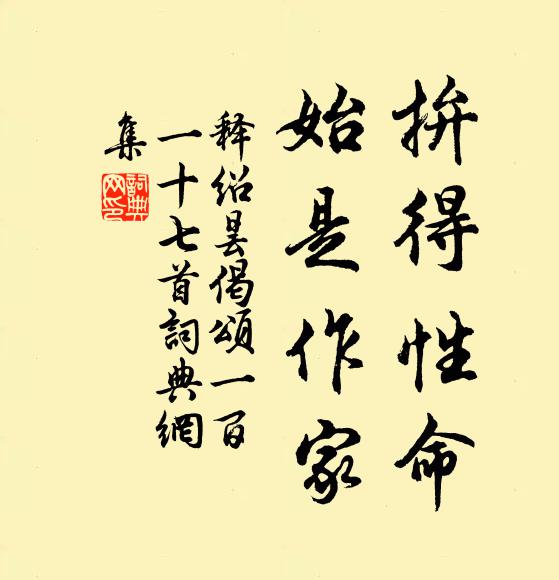 拚得性命
始是作家
释绍昙偈颂一百
一十七首詞典網
集
詞典
网印